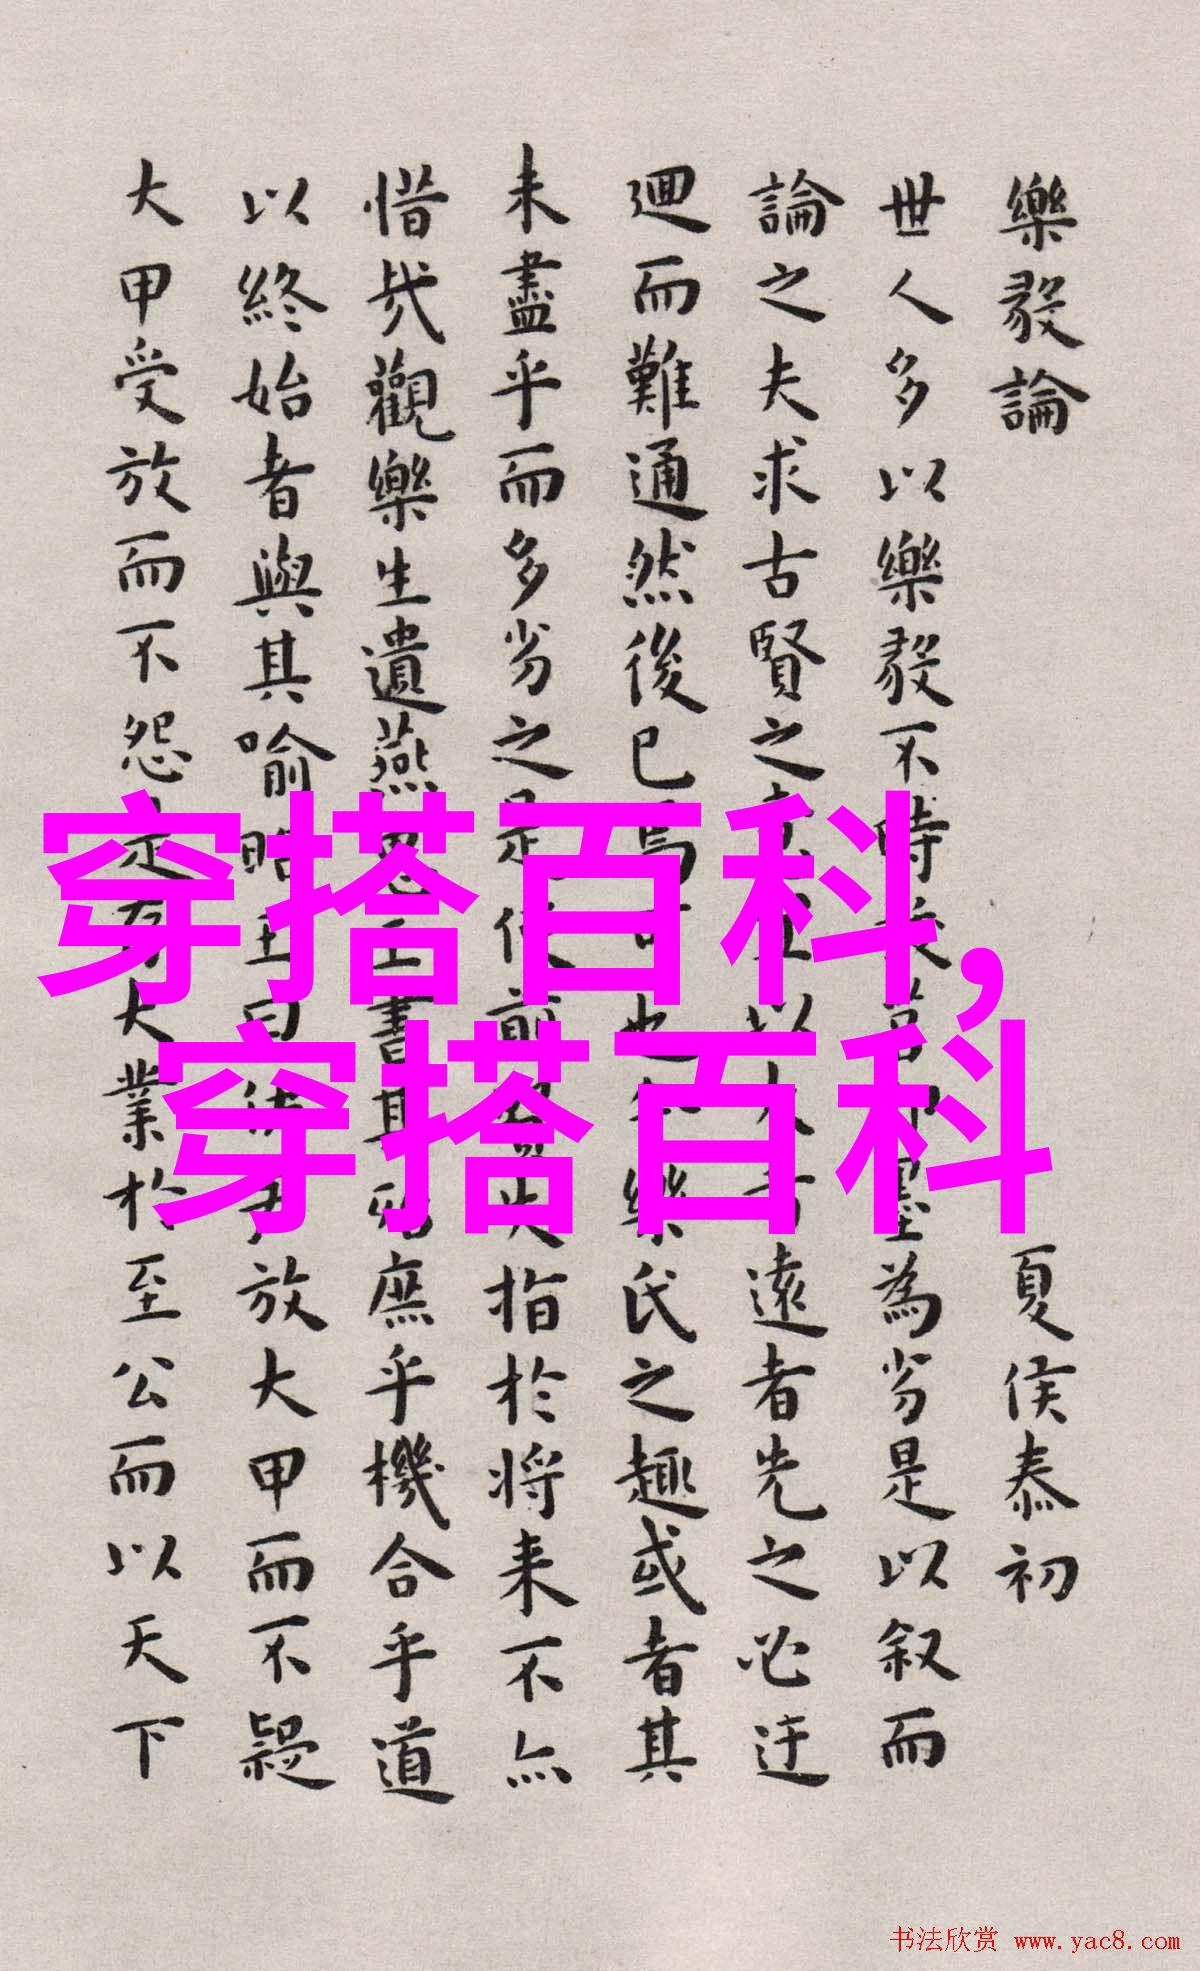 樂毅論 夏侯泰初
世人多以樂毅不時墨為劣是以叙而
論之夫求古賢之以大者遠者先之必迂
迴而難通然後已焉也樂氏之趣或者其
未盡乎而多劣之是使前失指於将来不亦
惜哉觀樂生遺燕王書其庶乎機合乎道
以終始者與其喻昭王曰放大甲而不疑
大甲受放而不怨是大業於至公而以天下
穿搭百科,
穿搭百科
书法欣赏 www.yac8.com